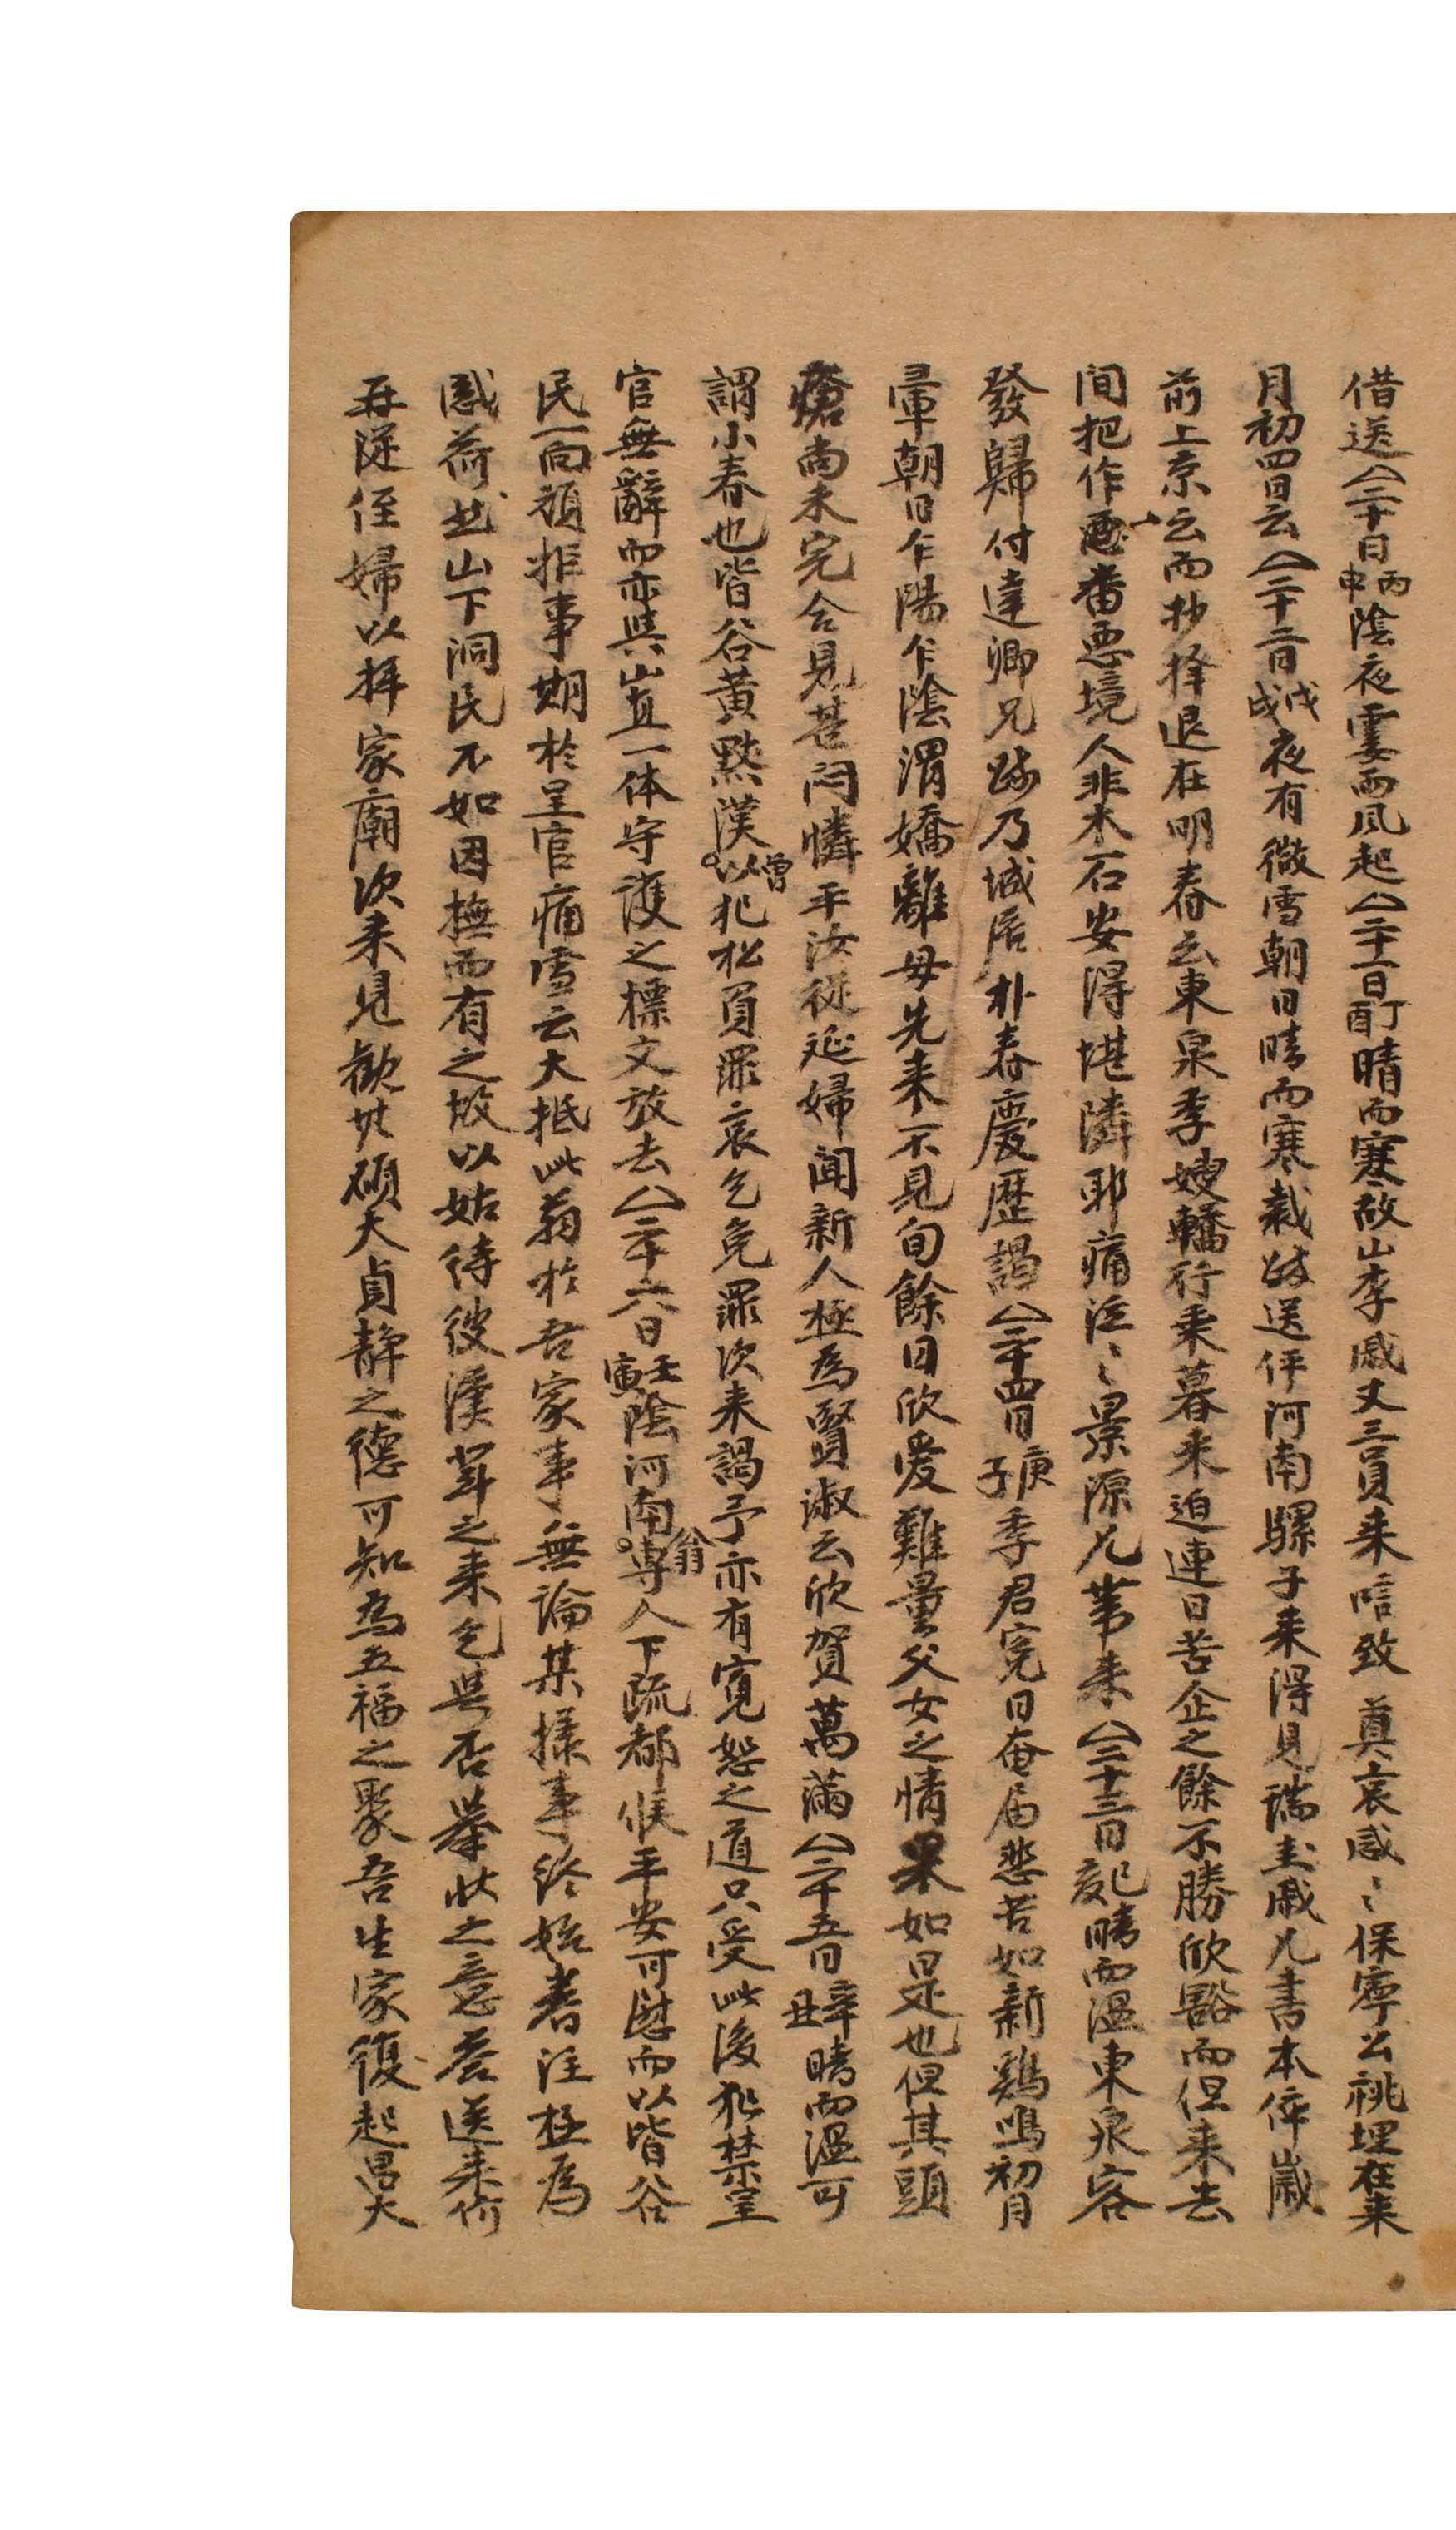 借送〈二十日丙申陰夜雯而風起〈二十一日丁酉晴而寒故山李戚丈三員来唁致 奠哀感〻保寧公祧埋在来
月初四日云〈二十二日戊戌夜有微雪朝日晴而寒裁疏送伻河南騾子来得見瑞圭戚兄書本倅歲
前上京云而抄擇退在明春云東泉季嫂轎行乘暮来迫連日苦企之餘不勝欣豁而但来去
间把作一番悪境人非木石安得堪隣耶痛泣〻景源兄第来〈二十三日己亥晴而温東泉客
發歸付達卿兄疏乃城居朴春慶歷謁〈二十四日庚子季君寃日奄届悲苦如新鷄鳴初月
暈朝日乍陽乍陰渭嬌離母先来不見旬餘日欣愛難量父女之情果如是也但其頭
瘡尚未完合見甚闷憐平汝従延婦闻新人極為賢淑云欣賀萬萬〈二十五日辛丑晴而温可
謂小春也皆谷黄點漢曾以犯松負罪哀乞免罪次来謁予亦有寬恕之道只受此後犯禁呈
官無辭而亦與山直一体守護之標文放去〈二十六日壬寅陰河南翁専人下疏都候平安可慰而以皆谷
民一向頑拒事期於呈官痛雪云大抵此翁於吾家事無論某樣事終始着注極為
感荷然山下洞民不如因撫而有之故以姑待彼漢輩之来乞與否擧状之意答送来价
再従侄婦以拜家廟次来見歡其碩大貞静之德可知為五福之聚吾生家復起昌大